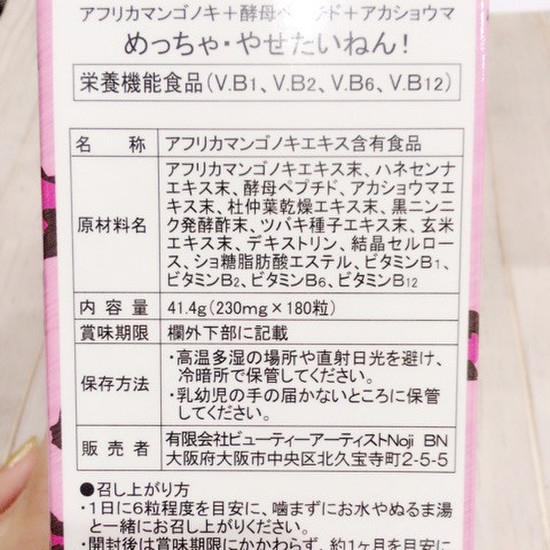 アフリカマンゴノキ＋酵母ペプチド＋アカショウマ
めっちゃ・やせたいねん！
栄養機能食品（V.B1、V.B2、V.B6、V.B12）
名　称
アフリカマンゴノキエキス含有食品
原材料名
アフリカマンゴノキエキス末、ハネセンナ
エキス末、酵母ペプチド、アカショウマエ
キス末、杜仲葉乾燥エキス末、黒ニンニ
ク発酵酢末、ツバキ種子エキス末、玄米
エキス末、デキストリン、結晶セルロー
ス、ショ糖脂肪酸エステル、ビタミンB1、
ビタミンB2、ビタミンB6、ビタミンB12
内 容 量
41.4g（230mg×180粒）
賞味期限
欄外下部に記載
保存方法
・高温多湿の場所や直射日光を避け、
冷暗所で保管してください。
・乳幼児の手の届かないところに保管
してください。
販 売 者
有限会社ビューティーアーティストNoji BN
大阪府大阪市中央区北久宝寺町2-5-5
●召し上がり方
・1日に6粒程度を目安に、噛まずにお水やぬるま湯
と一緒にお召し上がりください。
・開封後は賞味期限にかかわらず、約1ヶ月を目安に